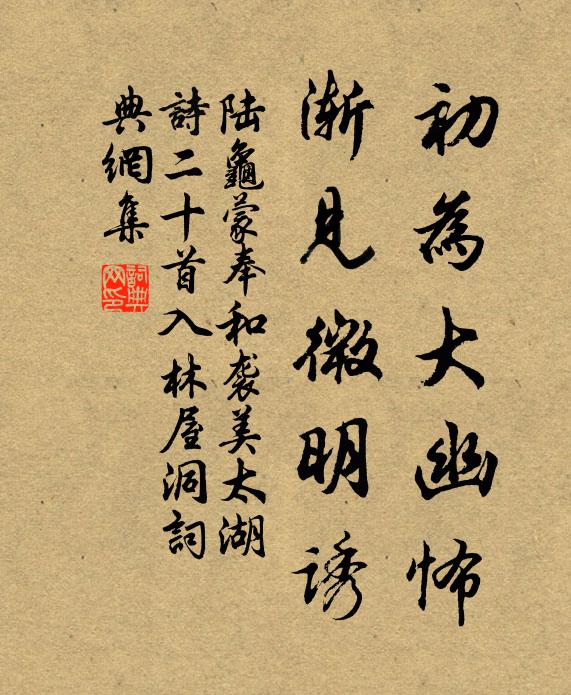 初為大幽怖
漸見微明誘
陆龜蒙奉和袭美太湖
詩二十首入林屋洞詞
典網集
詞典網印